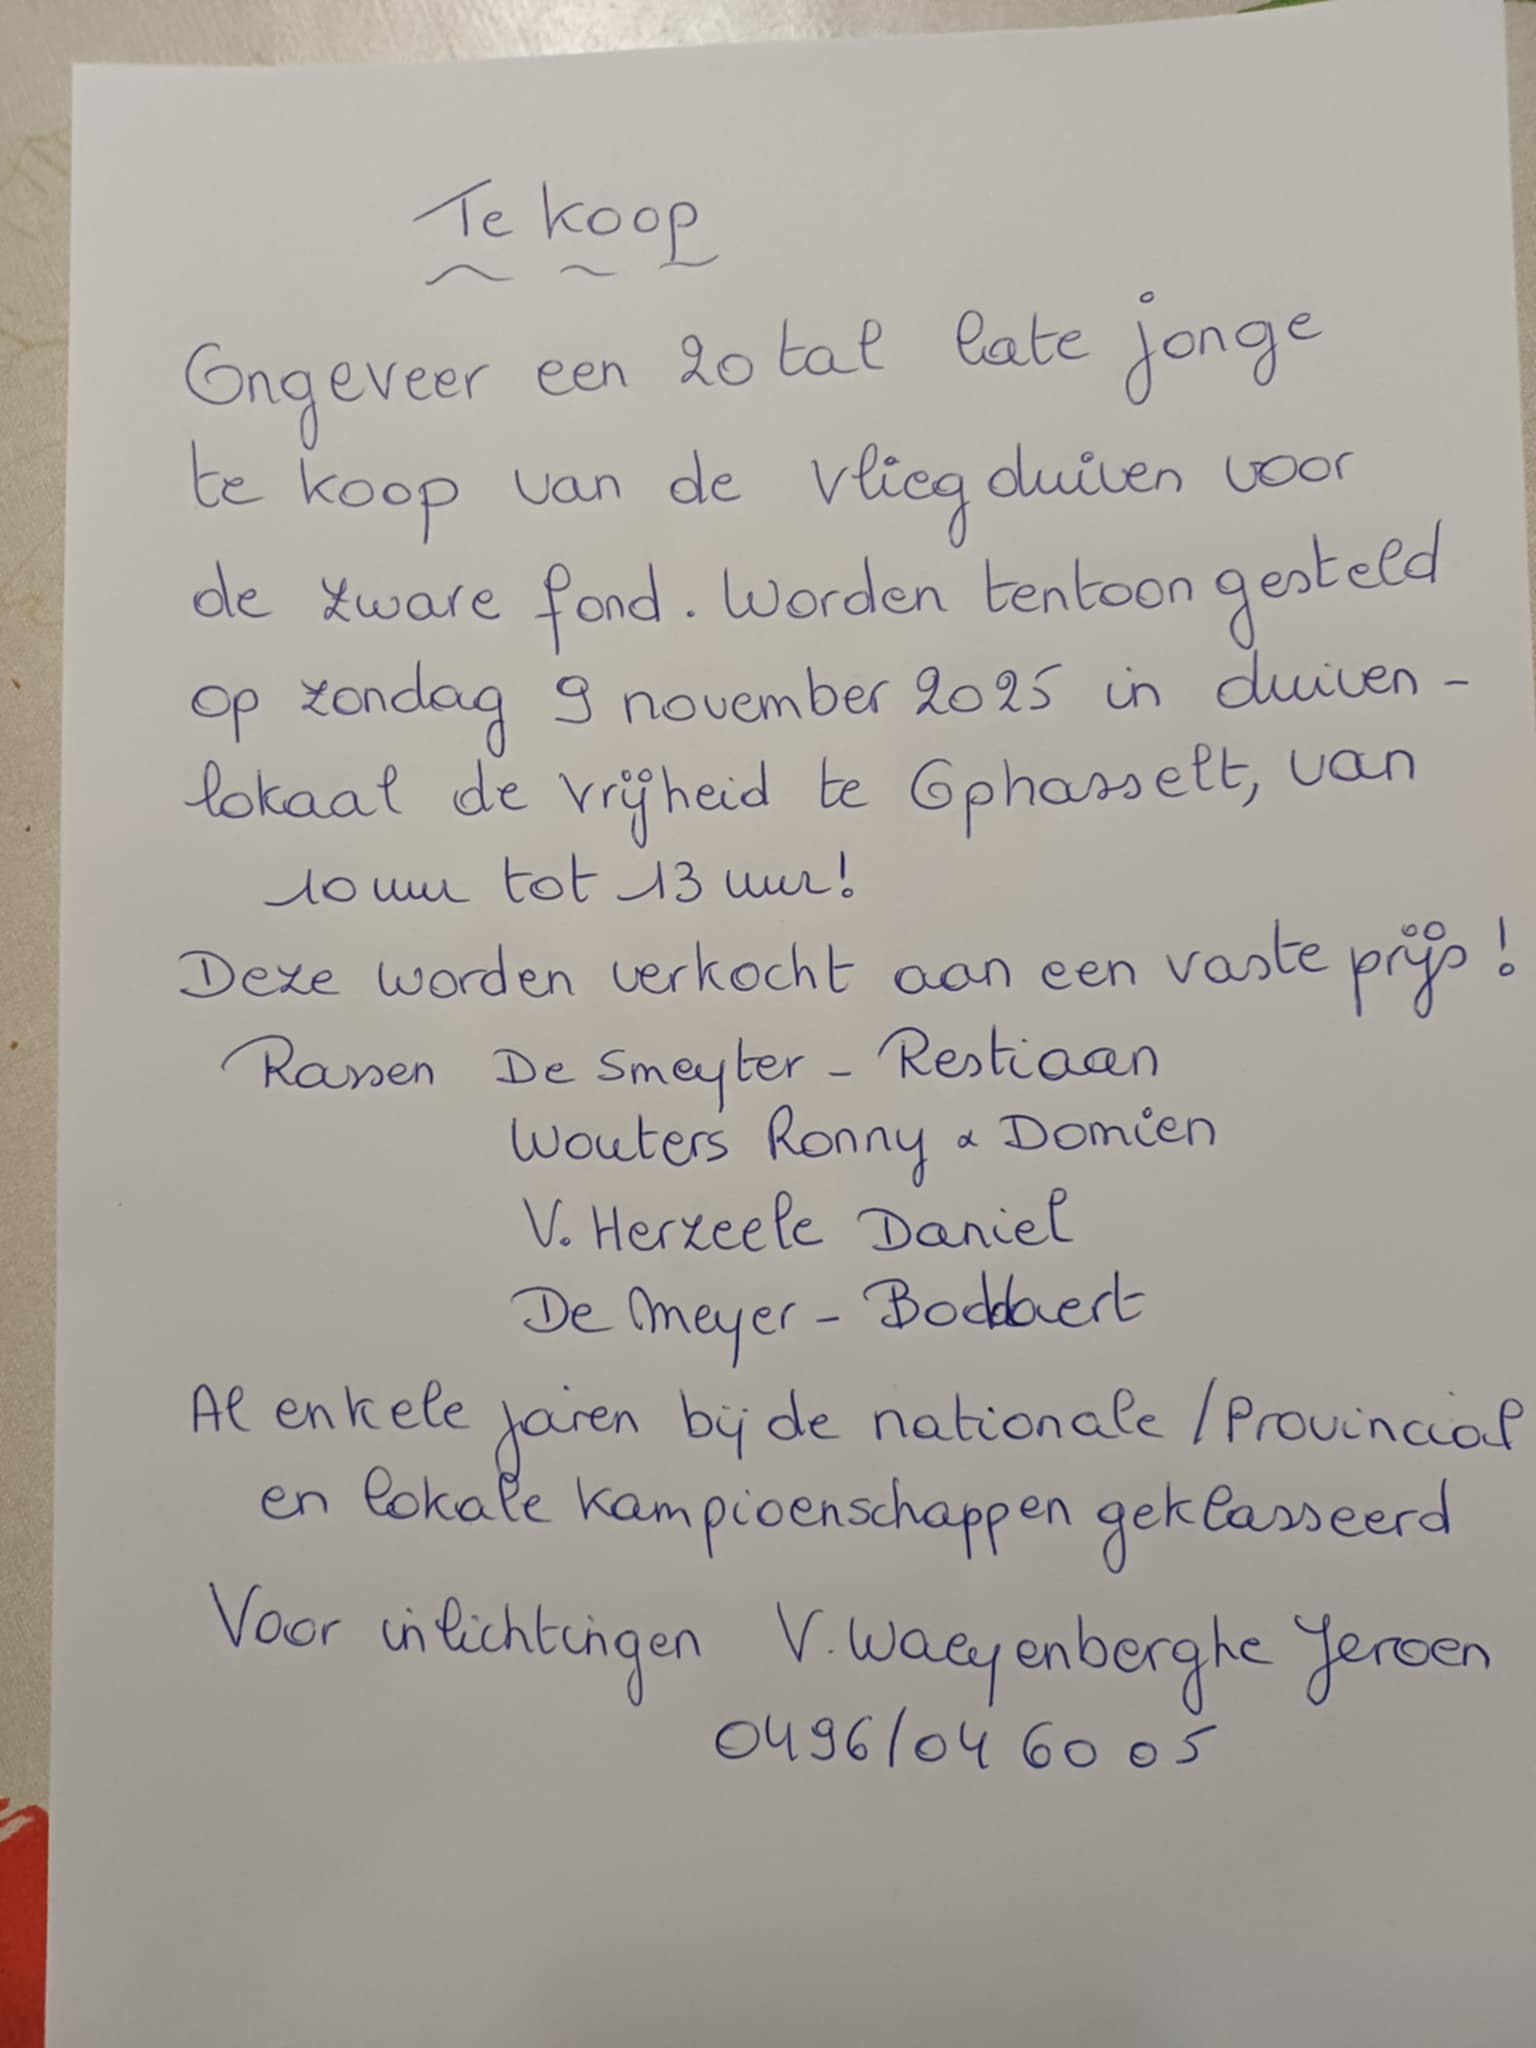 Te koop
Ongeveer een 20 tal late jonge
te koop van de vliegduiven voor
de zware fond. Worden tentoongesteld
op zondag 9 november 2025 in duiven-
lokaal de vrijheid te Ophasselt, van
10 uur tot 13 uur!
Deze worden verkocht aan een vaste prijs!
Rassen De Smeyter - Restiaan
Wouters Ronny & Domien
V. Herzeele Daniel
De Meyer - Boddaert
Al enkele jaren bij de nationale / Provinciaal
en lokale kampioenschappen geklasseerd
Voor inlichtingen V. Waeyenberghe Jeroen
0496/04 60 05